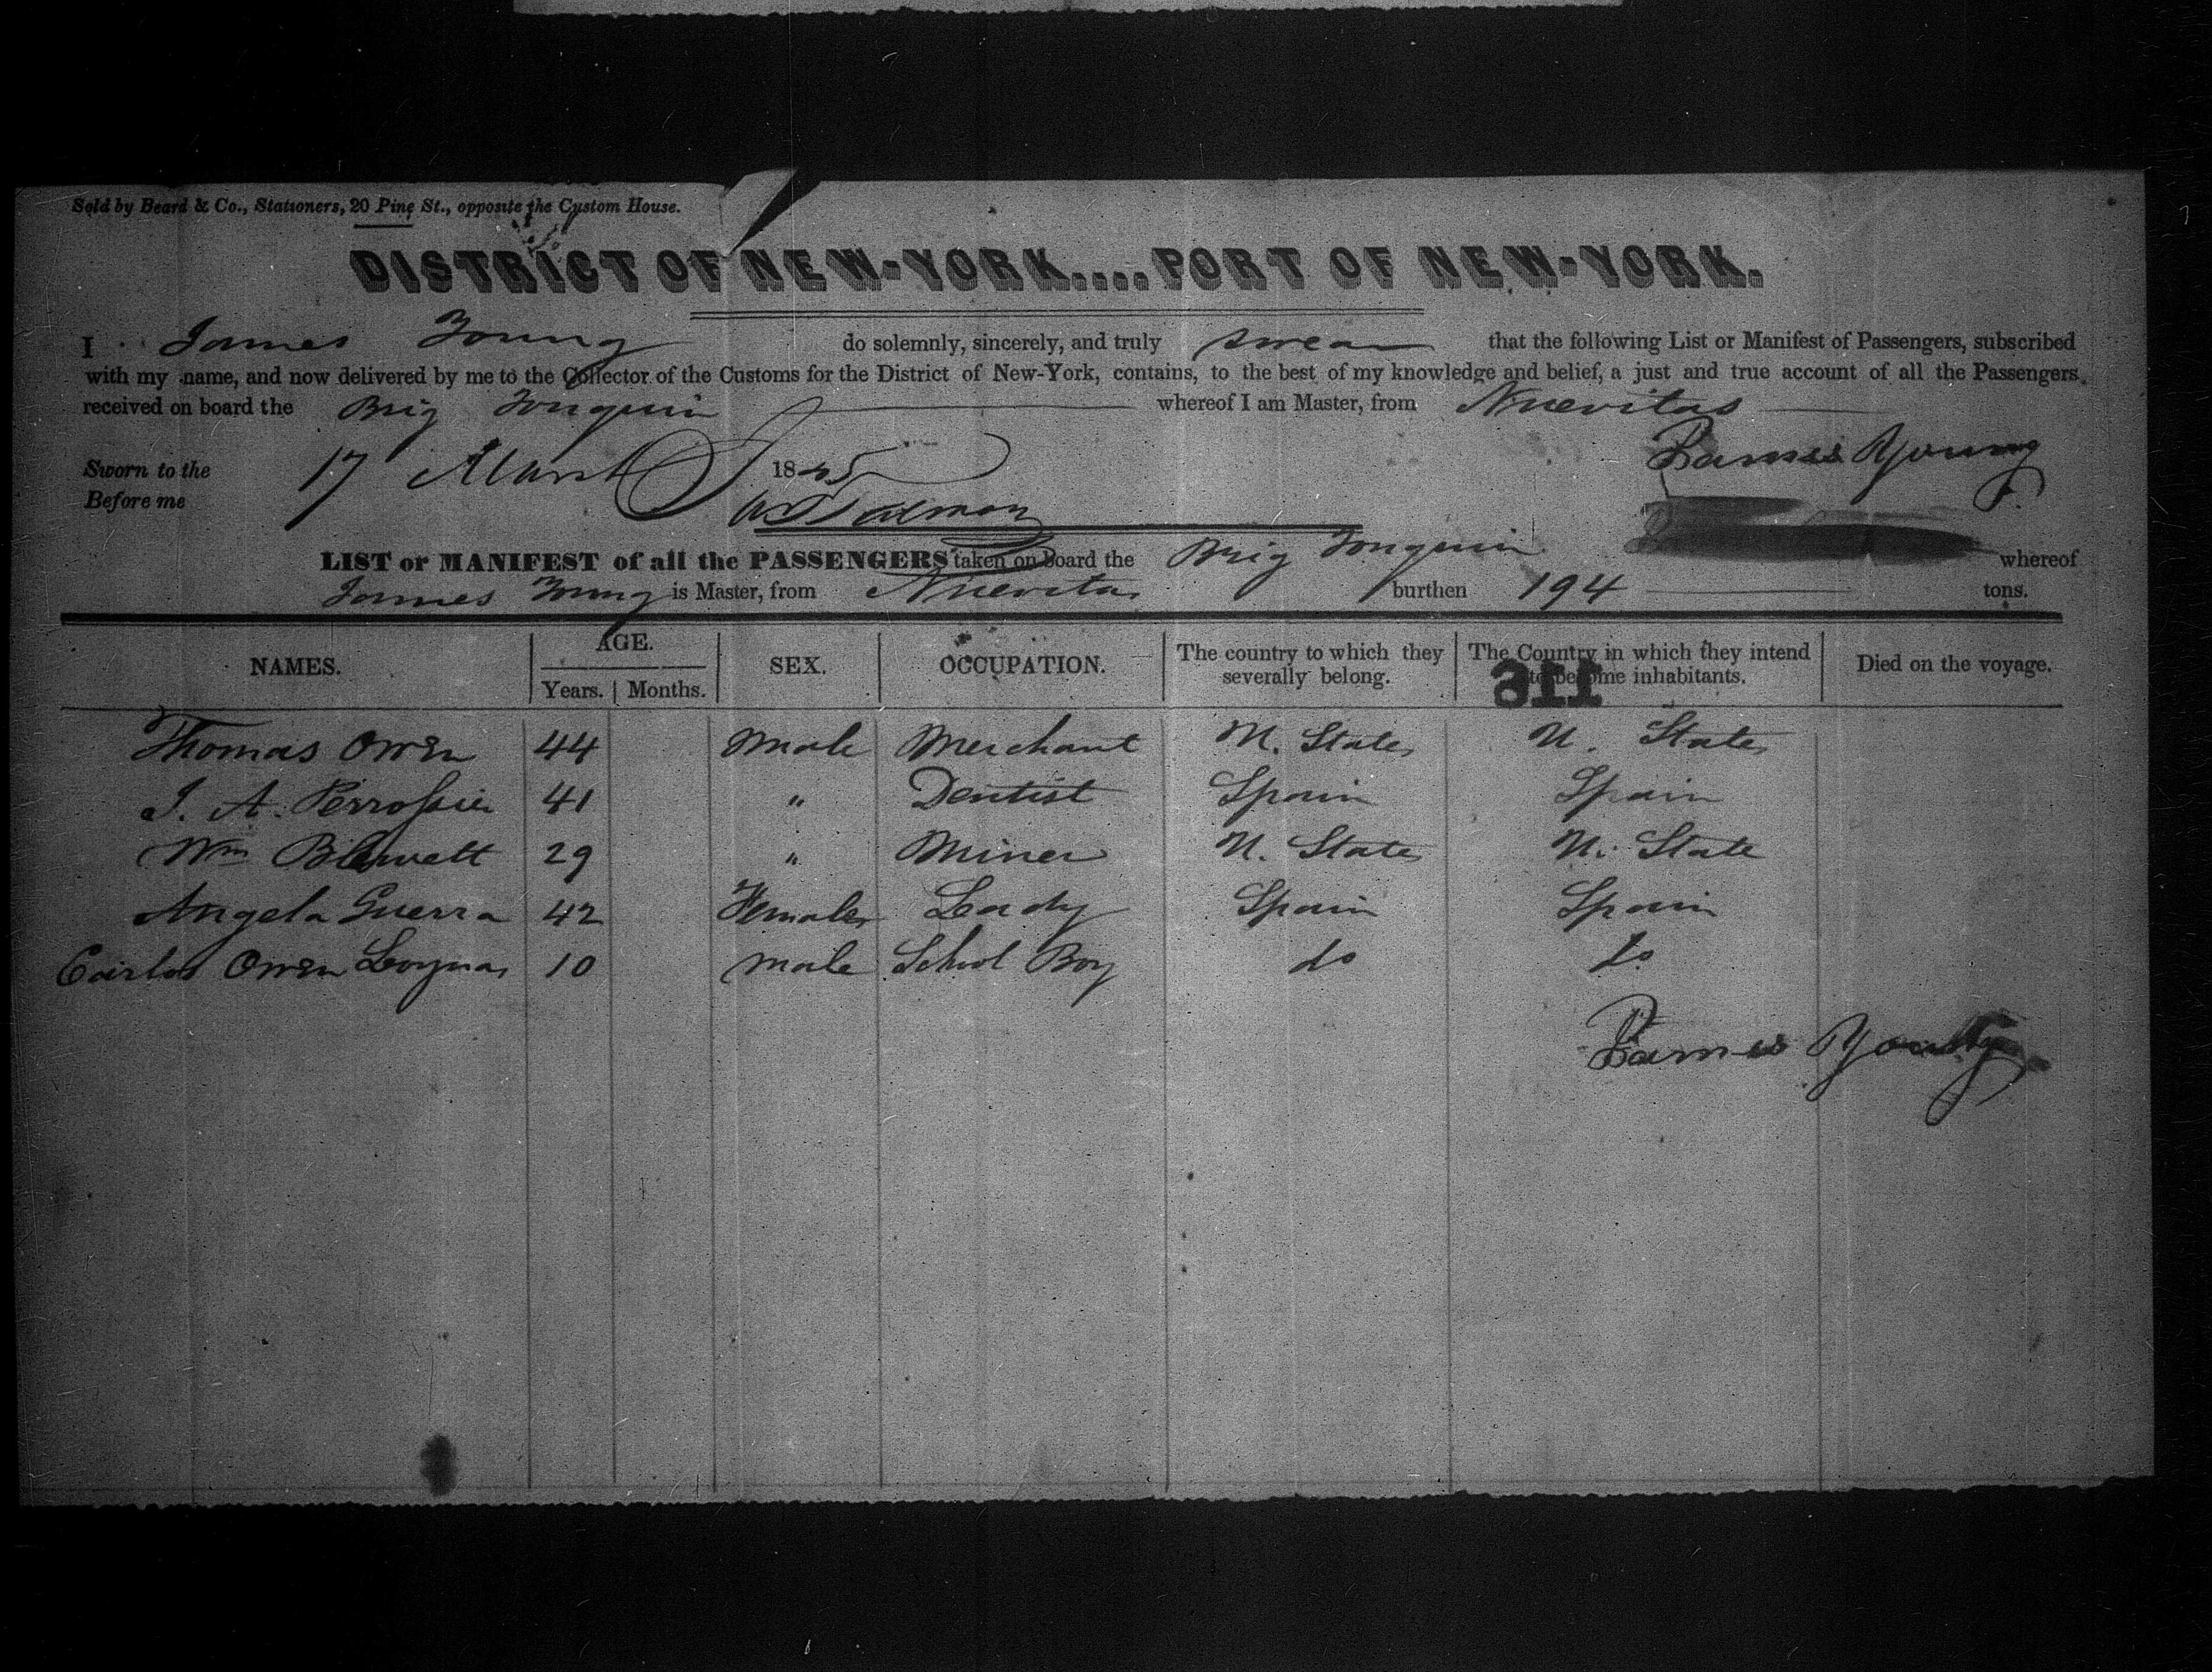 Sold by Beard & Co., Stationers, 20 Pine St., opposite the Custom House.
DISTRICT OF NEW-YORK....PORT OF NEW-YORK.
I James Young do solemnly, sincerely, and truly swear that the following List or Manifest of Passengers, subscribed
with my name, and now delivered by me to the Collector of the Customs for the District of New-York, contains, to the best of my knowledge and belief, a just and true account of all the Passengers
received on board the Brig Tonquin whereof I am Master, from Nuevitas
James Young
Sworn to the 17 March 1845
Before me
LIST or MANIFEST of all the PASSENGERS taken on board the Brig Tonquin whereof
James Young is Master, from Nuevitas burthen 194 tons.
NAMES. AGE. Years. Months. SEX. OCCUPATION. The country to which they severally belong. The Country in which they intend to become inhabitants. Died on the voyage.
116
Thomas Owen 44 Male Merchant U. States U. States
J. A. 41 " Dentist Spain Spain
Wm Blewett 29 " Miner U. States U. State
Angela Guerra 42 Female Lady Spain Spain
Carlos Owen Loynas 10 Male School Boy do do
James Young